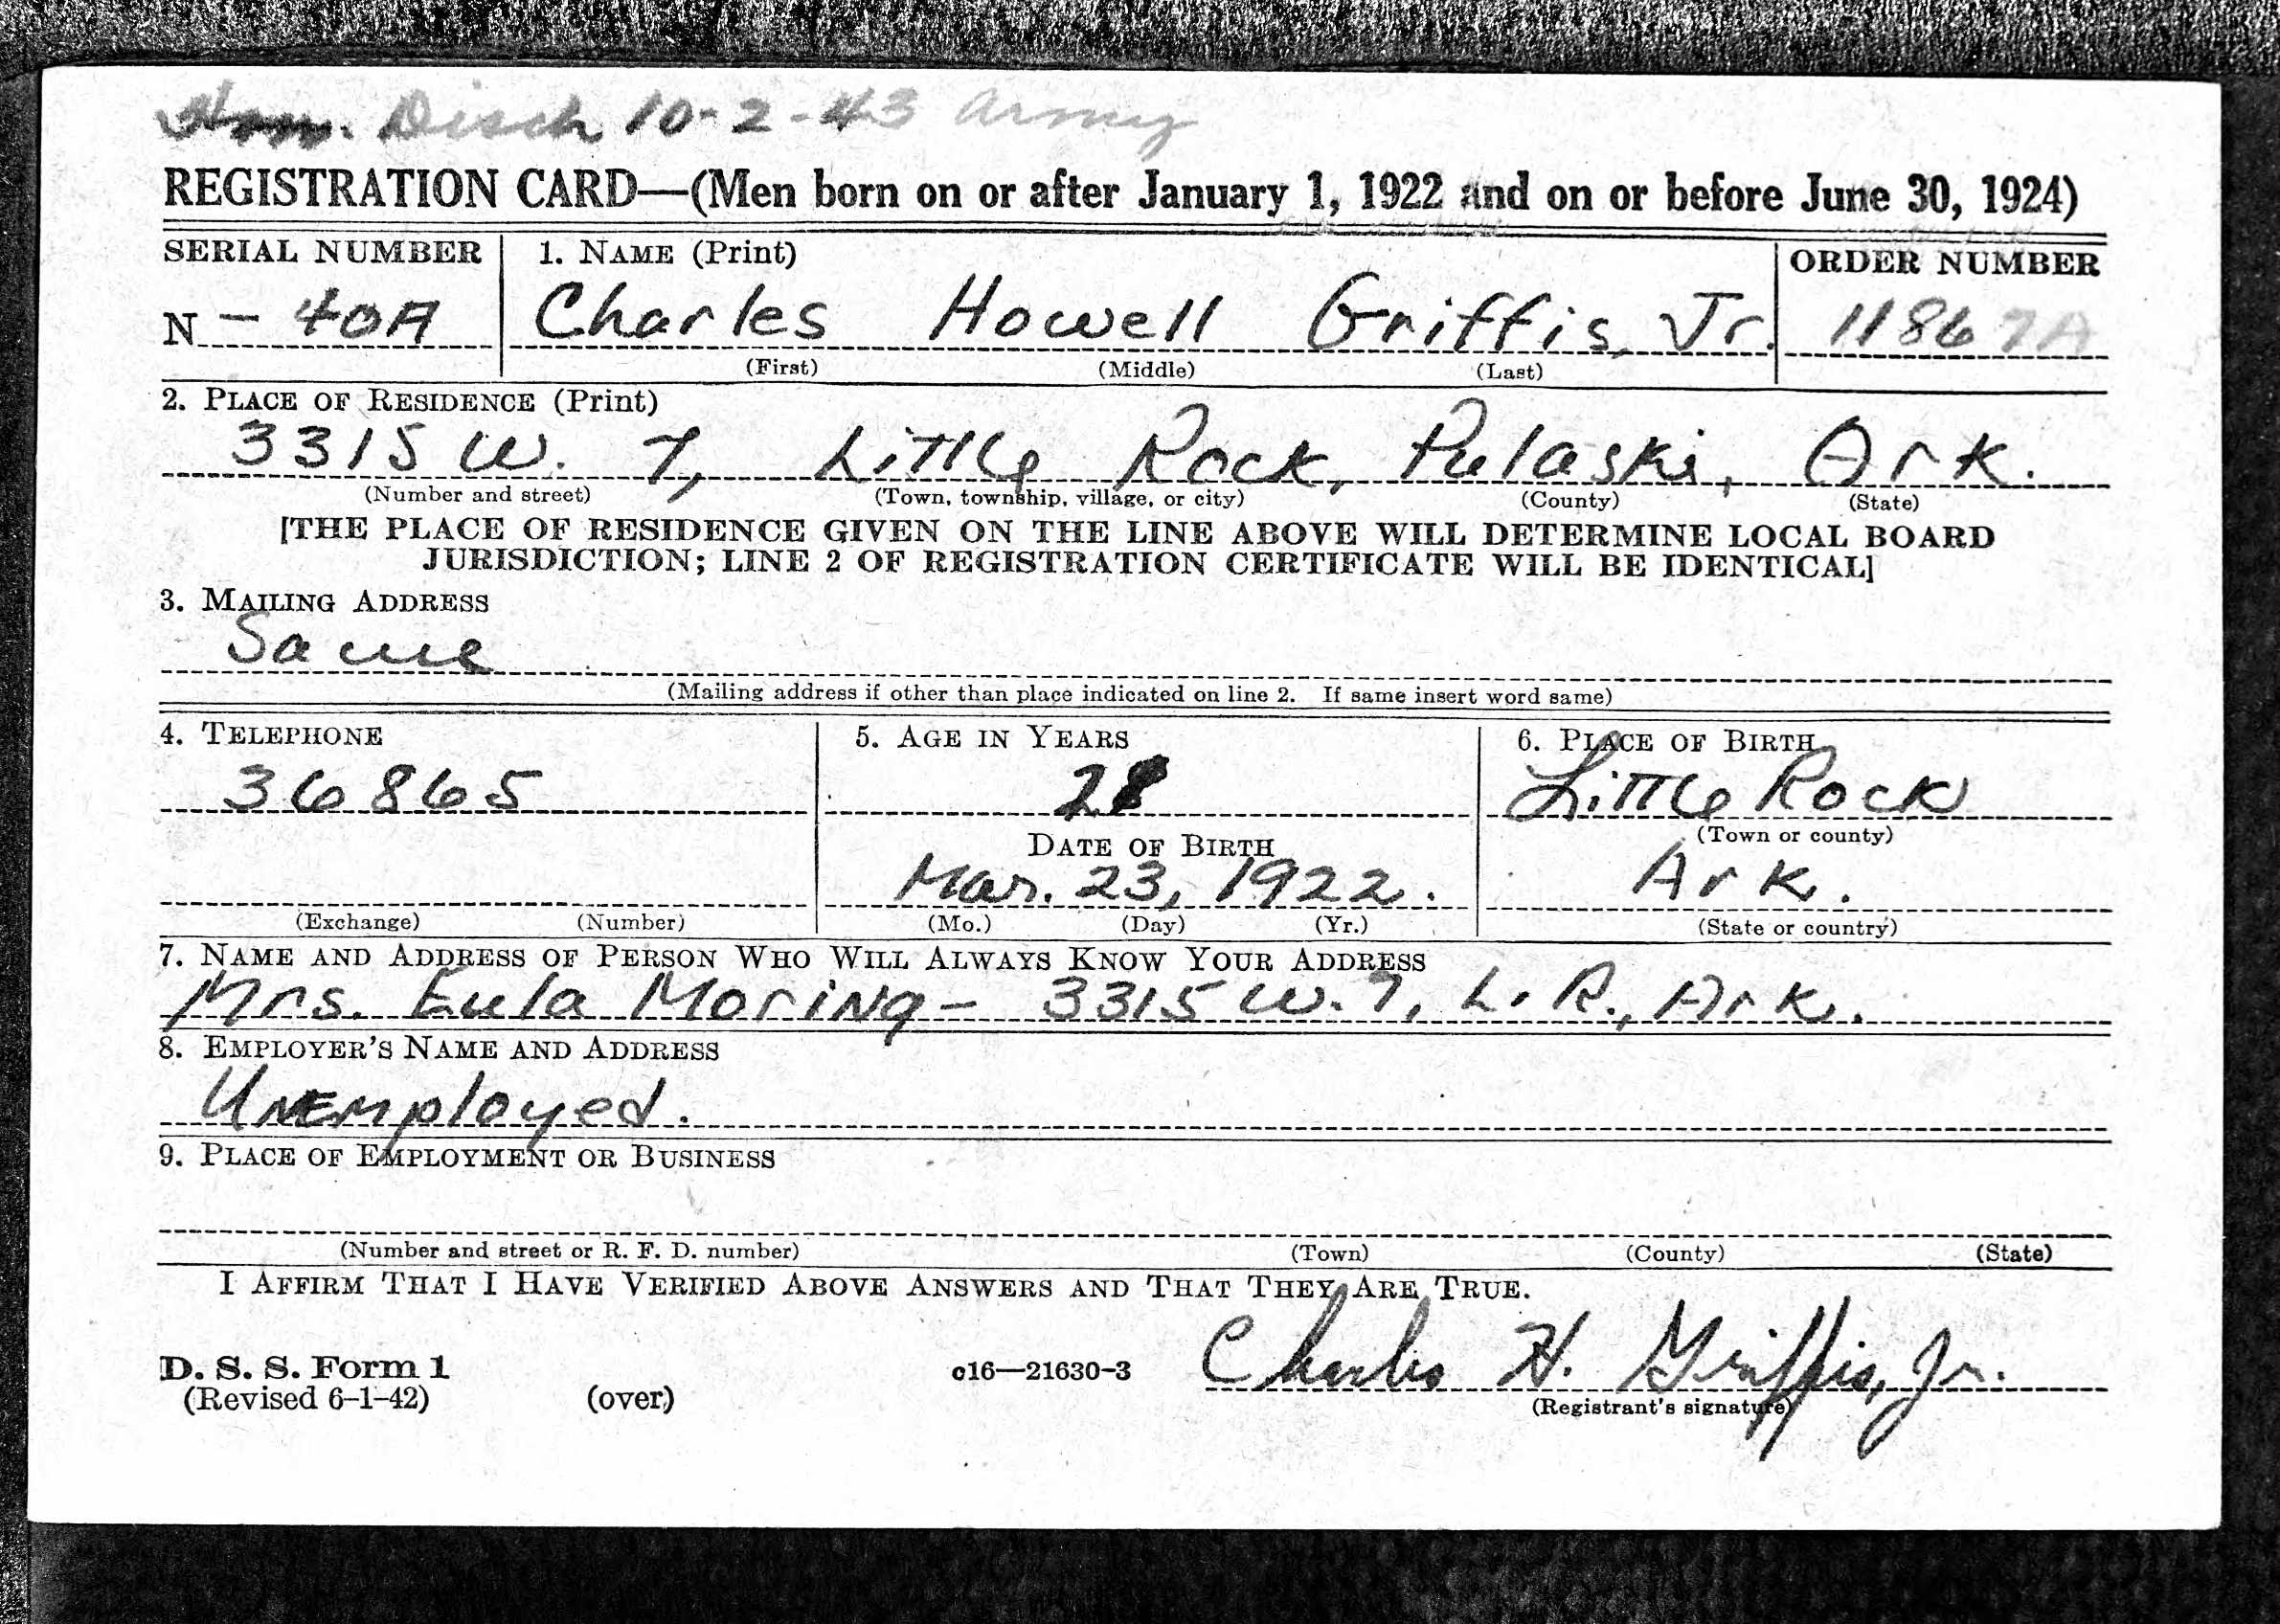 Hon. Disch 10-2-43 Army
REGISTRATION CARD—(Men born on or after January 1, 1922 and on or before June 30, 1924)
SERIAL NUMBER 1. NAME (Print) ORDER NUMBER
N - 40A Charles Howell Griffis, Jr. 11867A
(First) (Middle) (Last)
2. PLACE OF RESIDENCE (Print)
3315 W. 7, Little Rock, Pulaski, Ark.
(Number and street) (Town, township, village, or city) (County) (State)
[THE PLACE OF RESIDENCE GIVEN ON THE LINE ABOVE WILL DETERMINE LOCAL BOARD
JURISDICTION; LINE 2 OF REGISTRATION CERTIFICATE WILL BE IDENTICAL]
3. MAILING ADDRESS
Same
(Mailing address if other than place indicated on line 2. If same insert word same)
4. TELEPHONE 5. AGE IN YEARS 6. PLACE OF BIRTH
36865 Little Rock
DATE OF BIRTH (Town or county)
Mar. 23, 1922. Ark.
(Exchange) (Number) (Mo.) (Day) (Yr.) (State or country)
7. NAME AND ADDRESS OF PERSON WHO WILL ALWAYS KNOW YOUR ADDRESS
Mrs. Eula Moring - 3315 W. 7, L. R., Ark.
8. EMPLOYER'S NAME AND ADDRESS
Unemployed.
9. PLACE OF EMPLOYMENT OR BUSINESS
(Number and street or R. F. D. number) (Town) (County) (State)
I AFFIRM THAT I HAVE VERIFIED ABOVE ANSWERS AND THAT THEY ARE TRUE.
D. S. S. Form 1 c16—21630-3 Charles H. Griffis, Jr.
(Revised 6-1-42) (over) (Registrant's signature)